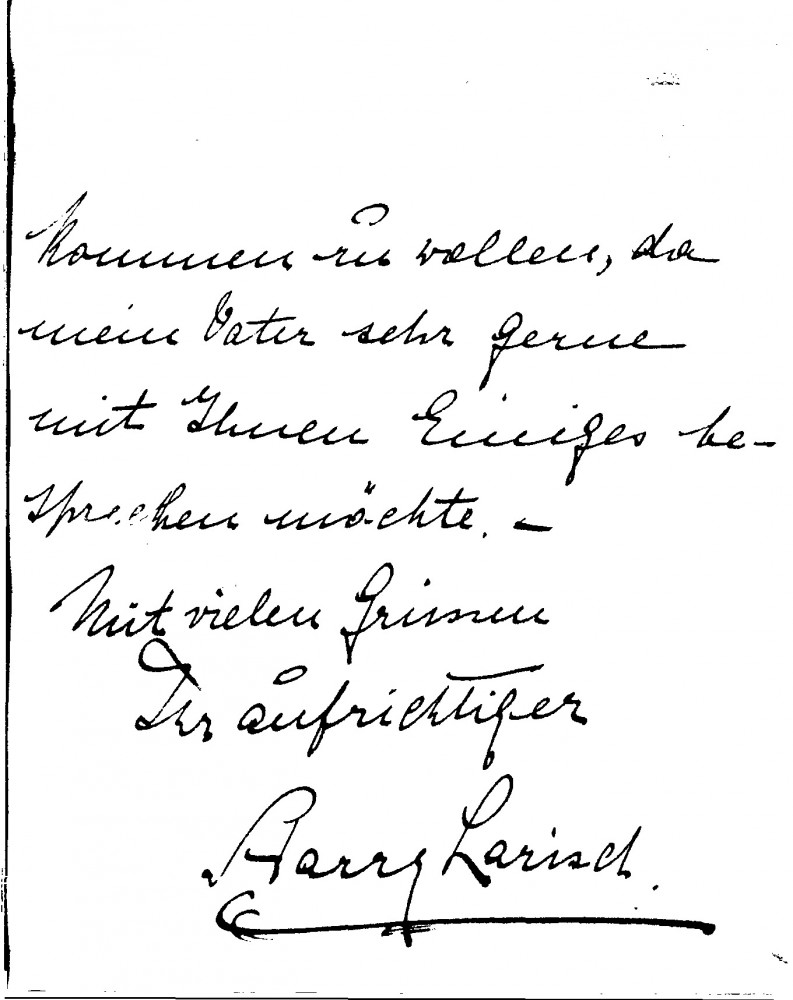 kommen zu wollen, da
mein Vater sehr gerne
mit Ihnen Einiges be-
sprechen möchte. –
Mit vielen Grüssen
Ihr aufrichtiger
Harry Larisch.